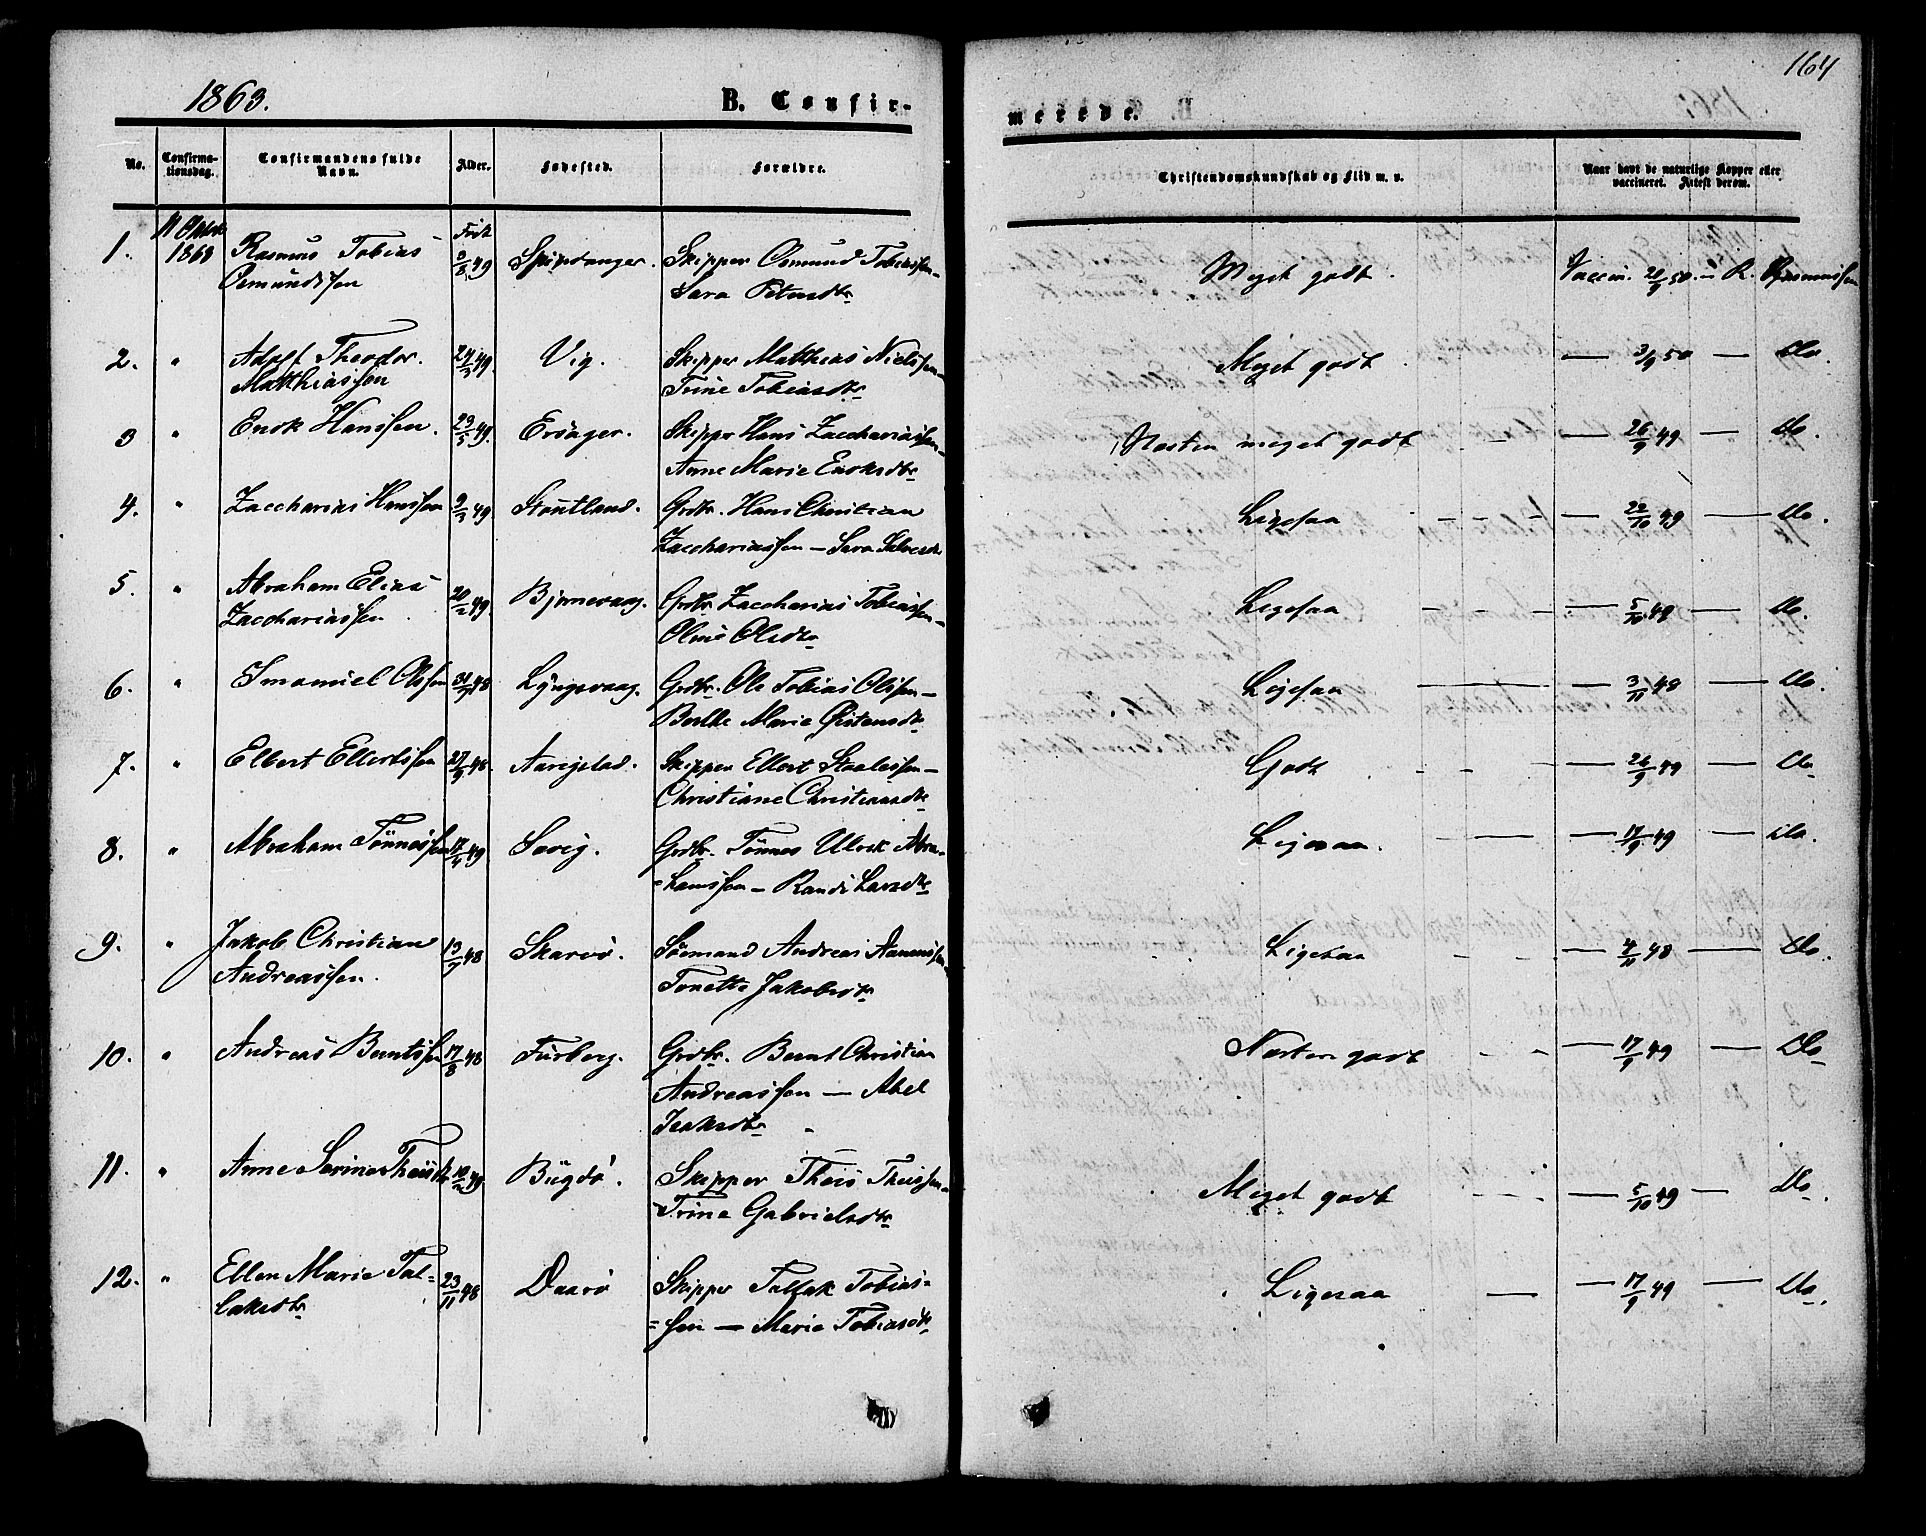 164
1863.
B. Confir-
merede.
No.
Confirma-
tionsdag.
Confirmandens fulde
Navn.
Alder.
Fødested.
Forældre.
Christendomskundskab og Flid m. v.
Naar havt de naturlige Kopper eller
vaccineret. Attest derom.
1. 11 1863 Rasmus Tobias 49 Skipper Osmund Tobiassen –
Osmundssen Sara Petersdtr
Meget godt. Vaccin. 20/9 50 – R. Rasmussen
2. " Adolf Theodor 24/3 49. Vig. Skipper Matthias Nielssen –
Matthiassen Trine Tobiasdtr
Meget godt — 3/9 50 — Do.
3 " Enok Hanssen. 23/5 49. Ersager. Skipper Hans Zacchariassen –
Anne Marie Enoksdtr
Næsten meget godt — 26/9 49 — Do.
4. " Zaccharias Hanssen 9/3 49. Stoutland. Grdbr. Hans Christian
Zacchariassen – Sara
Ligesaa — 22/10 49 — Do.
5. " Abraham Elias 20/2 49. Bjørnevaag. Grdbr. Zaccharias Tobiassen –
Zacchariassen Oline Olsdtr
Ligesaa — 5/10 49 — Do.
6. " Imanuel Olssen 48 Lyngsvaag. Grdbr. Ole Tobias Olssen –
Berthe Marie Østensdtr
Ligesaa — 3/11 48 — Do.
7. " Elbert Ellertssen 27/9 48. Aarigstad. Skipper Ellert Staalessen –
Christiane Christiansdtr
Godt — 26/9 49 — Do
8. " Abraham Tønnessen 17/4 49 Savig. Grdbr. Tønnes Ulrik Abra-
=hamssen – Randi Larsdtr
Ligesaa — 17/9 49 — Do.
9. " Jakob Christian 13/9 48 Skarvø. Sømand Andreas
Andreassen. Tonette Jakobsdtr
Ligesaa — 4/11 48 — Do.
10. " Andreas Berntssen 17/8 48 Furberg. Grdbr. Bernt Christian
Andreassen — Abel
Isaksdtr
Næsten godt — 17/9 49 — Do
11. " Anne Serine Theisdtr 10/2 49 Bügdø. Skipper Theis Theissen –
Trine Gabrielsdtr
Meget godt — 5/10 49 — Do.
12. " Ellen Marie Tal= 23/11 48 Daarø Skipper Tallak Tobias=
laksdtr =sen — Marie Tobiasdtr
Ligesaa — 17/9 49 — Do.